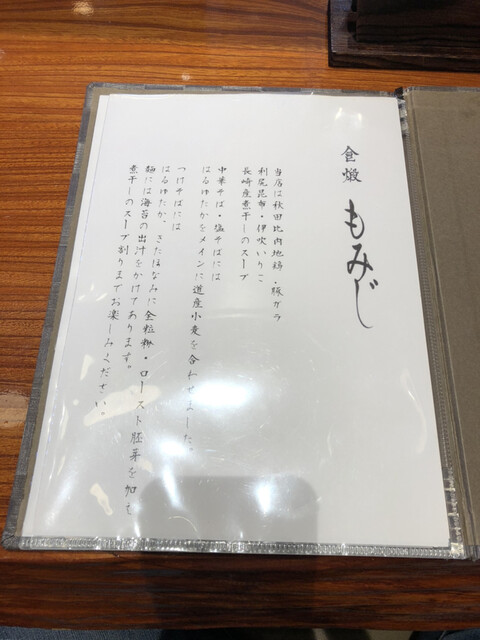 食煅 もみじ
当店は秋田比内地鶏・豚ガラ
利尻昆布・伊吹いりこ
長崎産煮干しのスープ
中華そば・塩そばには
はるゆたかをメインに道産小麦を合わせました。
つけそばには
はるゆたか、きたほなみに全粒粉・ロースト胚芽を加え
麺には海苔の出汁をかけてあります。
煮干しのスープ割りまでお楽しみください。